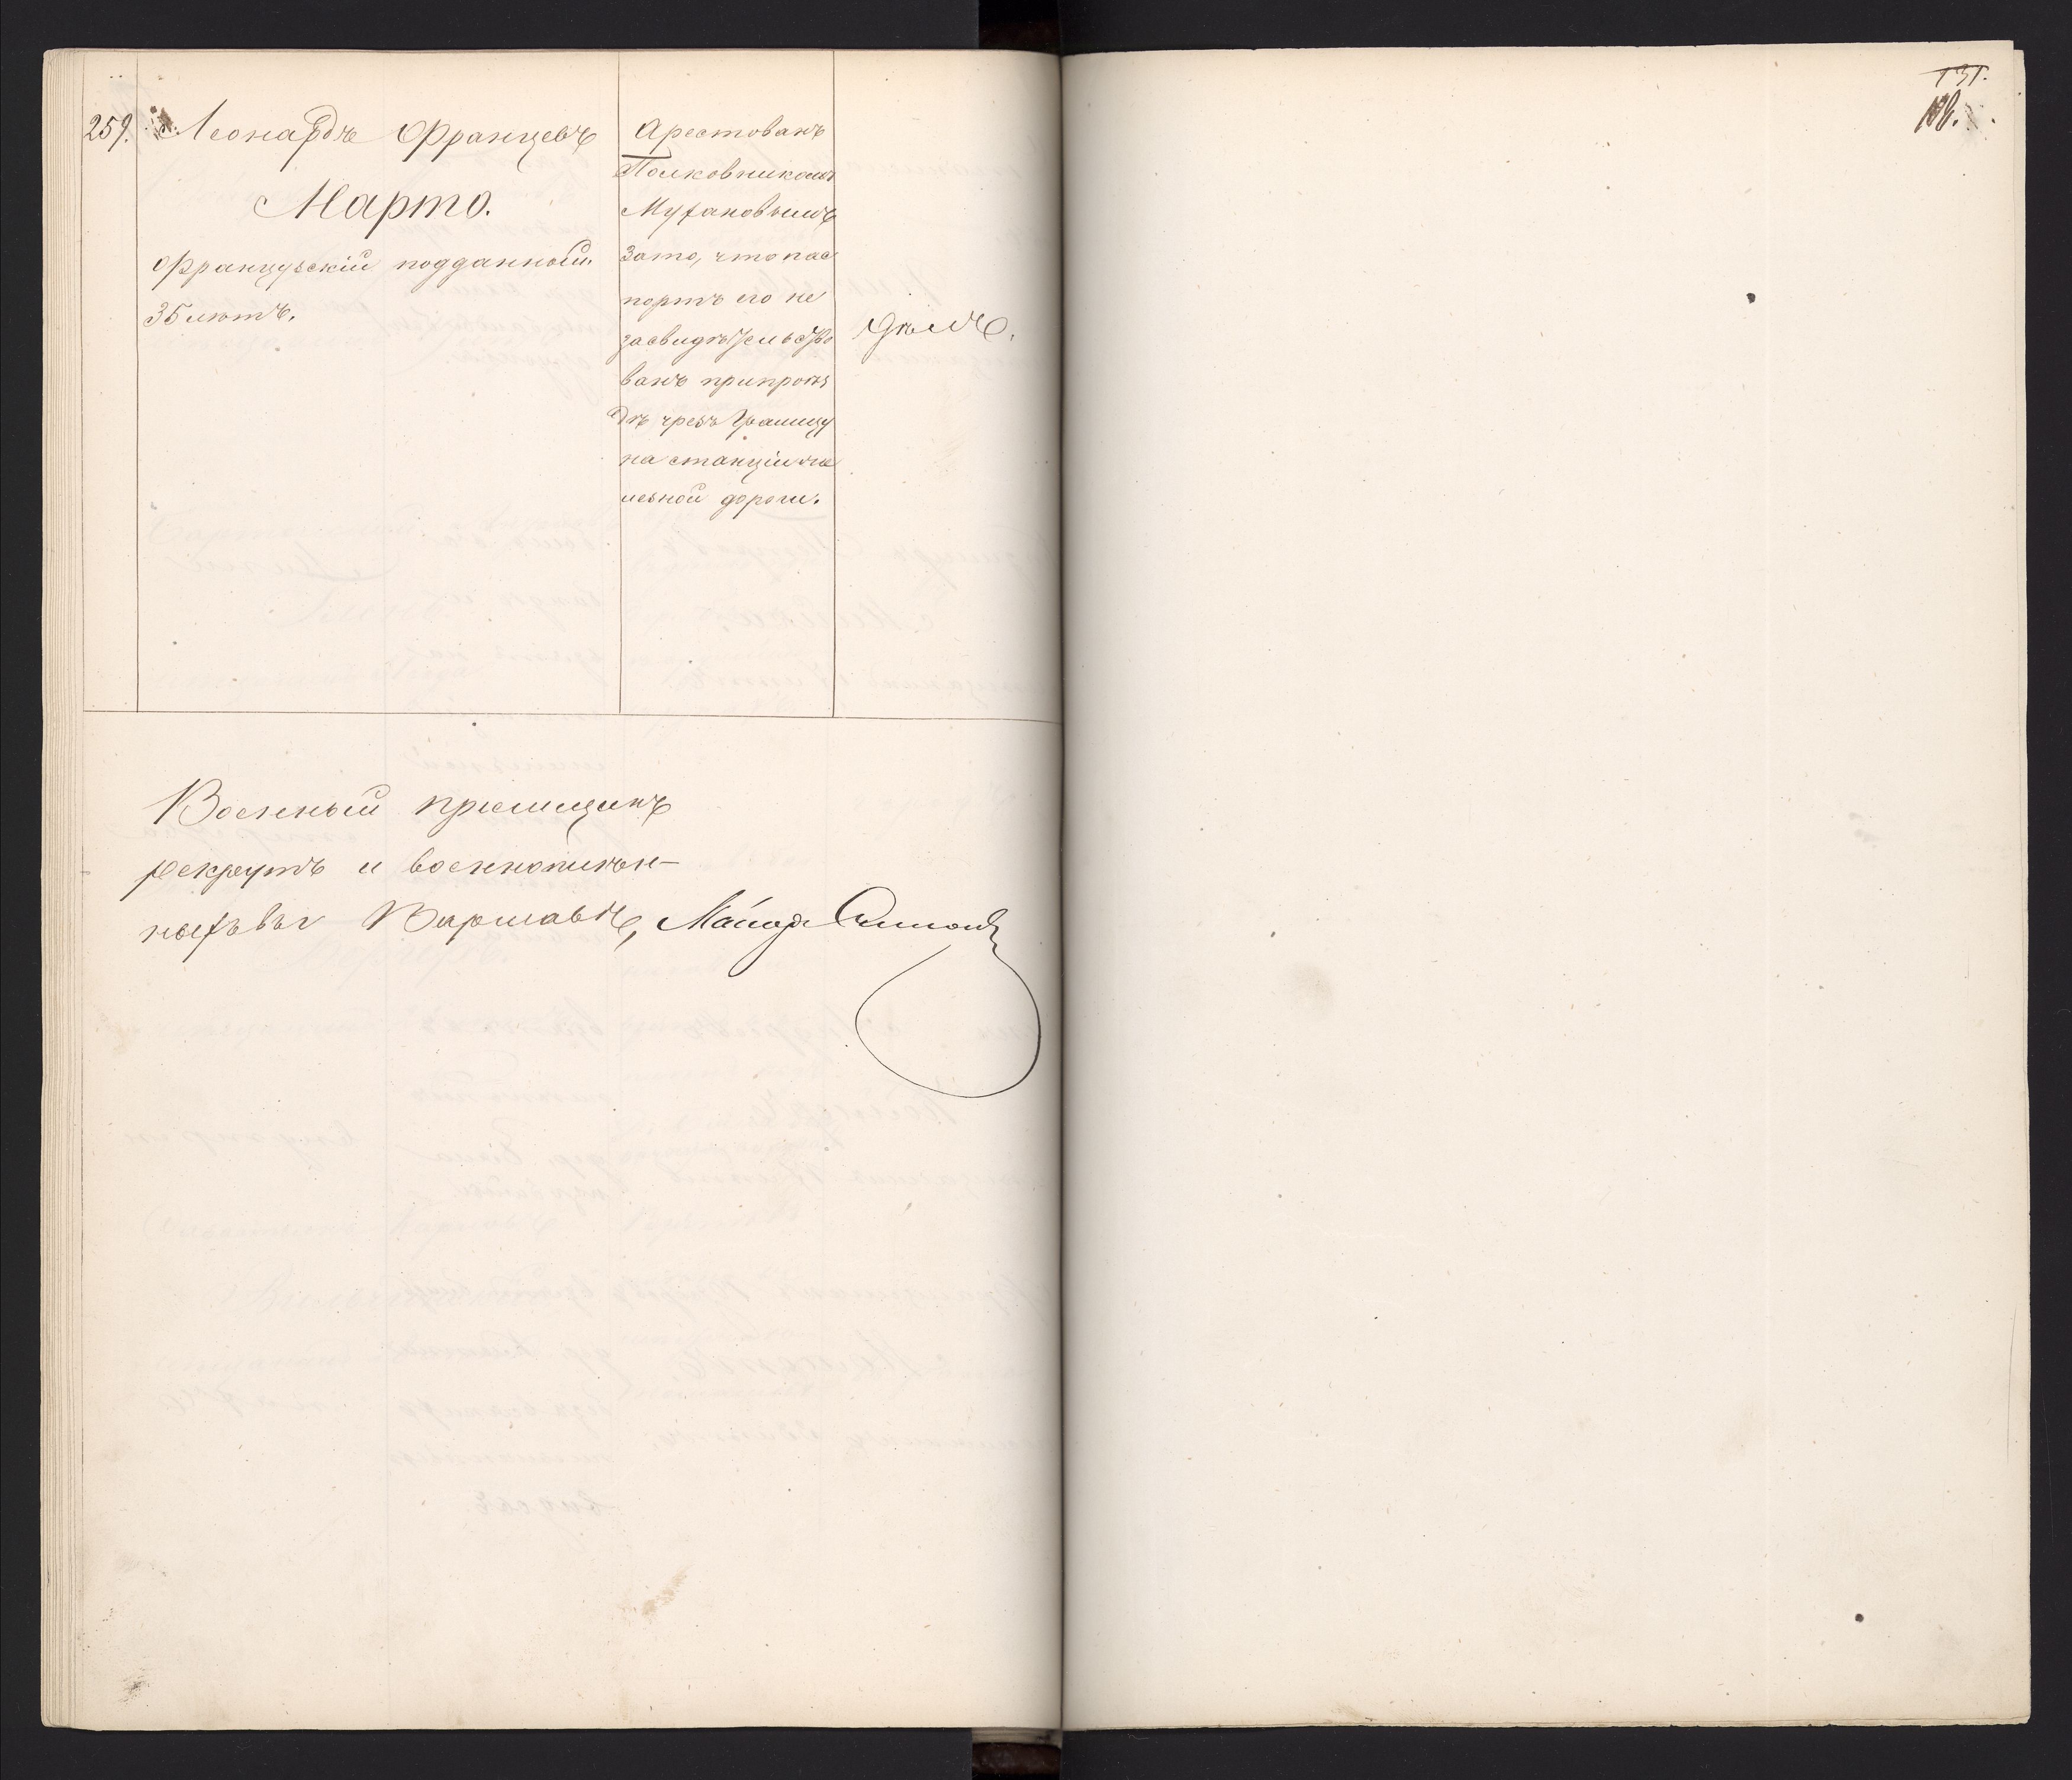 259. Леонардъ Францевъ
Марто.
Французскій подданный.
35 лѣтъ.
Арестованъ
Полковникомъ
Мухановымъ
за то, что пас
портъ его не
засвидѣтельство
ванъ при проѣз
дѣ чрезъ границу
на станціи же
лѣзной дороги.
Военный пріемщикъ
рекрутъ и военноплѣн-
ныхъ въ Варшавѣ, Маіоръ
131.